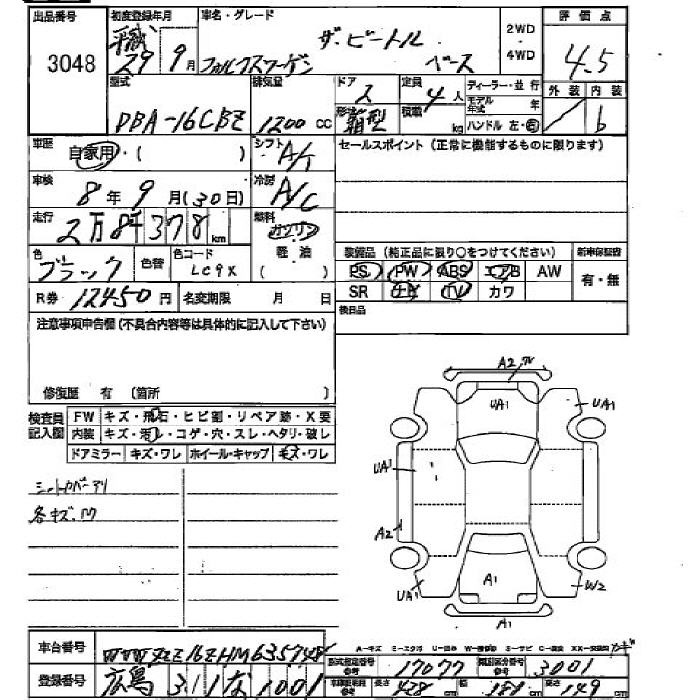 出品番号
3048
初度登録年月
平成
29 9月
車名・グレード
ザ・ビートル
フォルクスワーゲン ベース
2WD
・
4WD
評価点
4.5
外装 内装
b
型式
DBA-16CBZ
排気量
1200 CC
ドア
2
定員
4人
形状
箱型
積載
kg
ディーラー・並行
モデル年式 年
ハンドル 左・右
車歴
自家用・( )
シフト
A/T
セールスポイント(正常に機能するものに限ります)
車検
8年9月(30日)
冷房
A/C
走行
2万8千378km
燃料
ガソリン
軽・油
( )
色
ブラック
色替
色コード
LC9X
装備品(純正品に限り○をつけてください)
新車保証書
PS PW ABS エアB AW
有・無
SR ナビ TV カワ
R券 12450円
名変期限 月 日
後日品
注意事項申告欄(不具合内容等は具体的に記入して下さい)
修復歴 有 (箇所 )
検査員記入欄
FW キズ・飛石・ヒビ割・リペア跡・X要
内装 キズ・汚レ・コゲ・穴・スレ・ヘタリ・破レ
ドアミラー キズ・ワレ ホイール・キャップ キズ・ワレ
シートカバーアリ
各キズ、M
A2
UA1
UA1
UA1
A2
UA1
A1
W2
A1
車台番号
WVWZZZ16ZHM635748
登録番号
広島 311 な 1001
型式指定番号
17077
類別区分番号
3001
長さ 428cm
幅 181cm
高さ 149cm